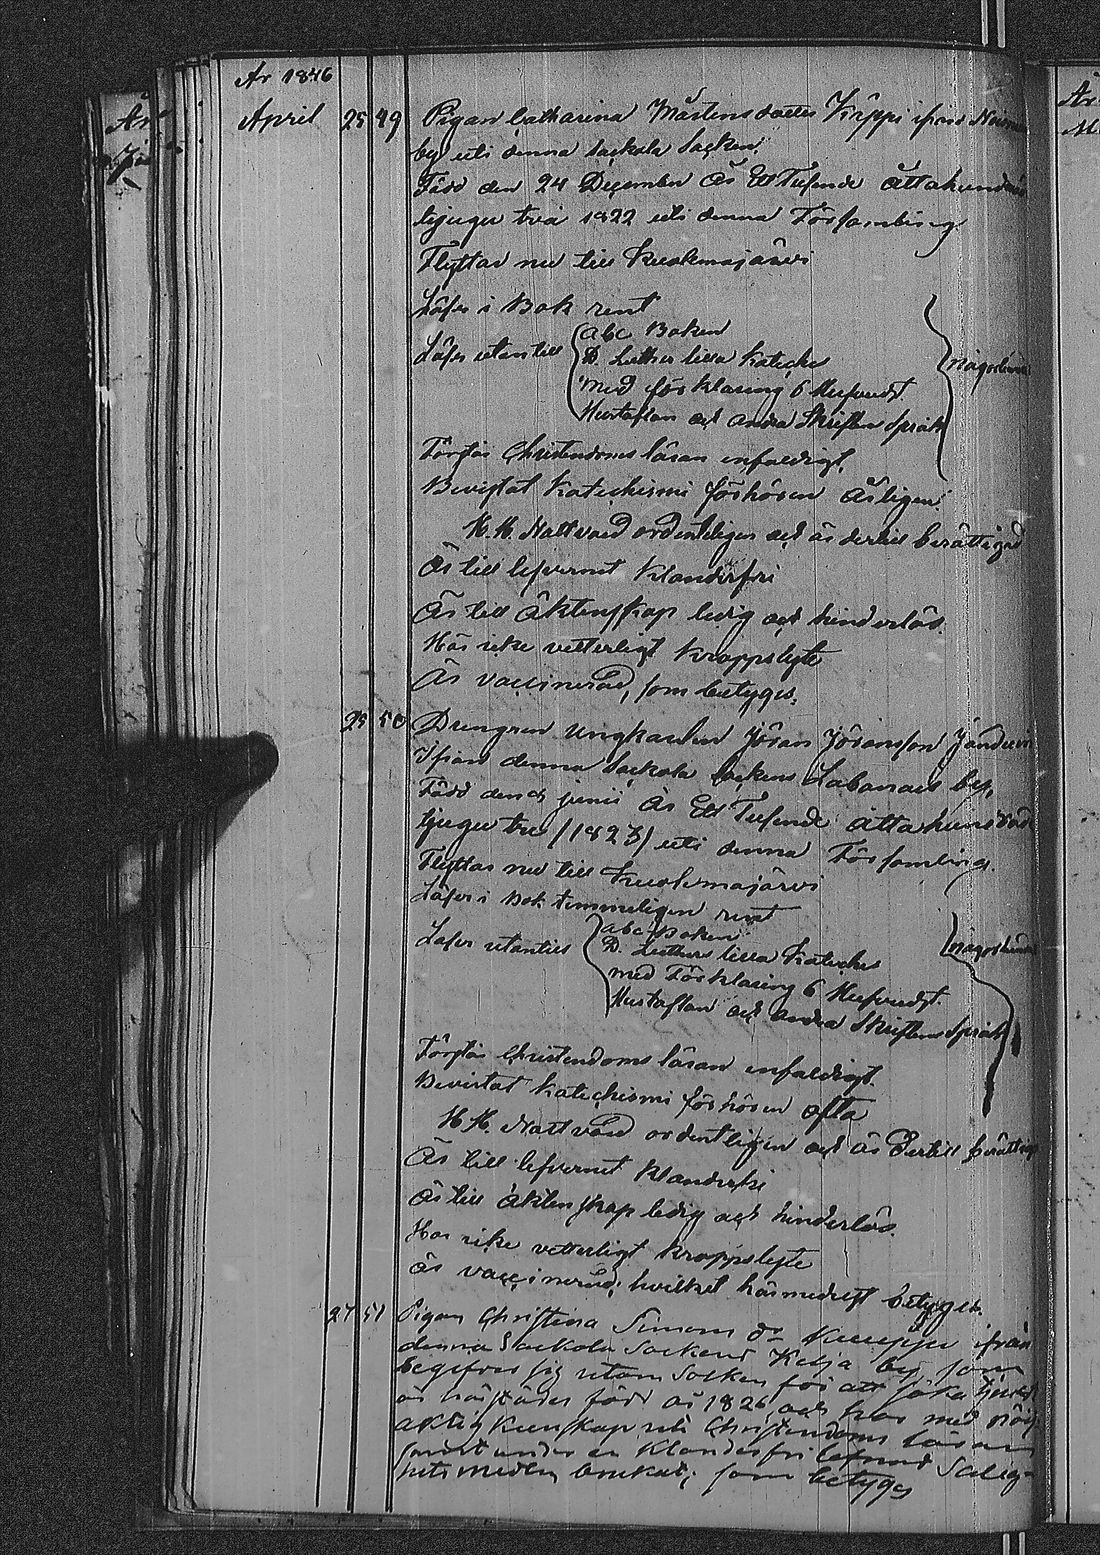 År 1846
April 25 49 Pigan Catharina Mårtensdotter Käppi ifrån
by uti denna Sackola Sochen.
Född den 24 December År Ett Tusende åttahundra
tjugu två 1822 uti denna Församling
Flyttar nu till Kuolemajärvi
Läser i Bok rent
Läser utantill
abc Boken
D. Luthers lilla Kateches
med förklaring 6 Hufvudst
Hustaflan och andra Skriftens Språk
någorlunda
Förstår Christendoms läran enfaldigt,
Bevistat Katechismi förhören årligen
H. H. Nattvard ordentligen och är dertill berättigad
Är till lefvernet Klanderfri
Är till äktenskap ledig och hinderlös.
Har icke vetterligt kroppslyte
Är vaccinerad, som betyges.
25 50 Drengen ungkarlen Jöran Jöransson
Ifrån denna Sackola Sochens Labanais by,
Född den junii År Ett Tusende åtta hundrad
tjugu tre (1823) uti denna Församling.
Flyttar nu till Kuolemajärvi
Läser i Bok temmeligen rent
Läser utantill
abc Boken
D. Luthers lilla Kateches
med Förklaring 6 Hufvudst.
Hustaflan och andra Skriftens Språk
någorlunda
Förstår Christendoms läran enfaldigt.
Bevistat Katechismi förhören ofta
H. H. Nattvard ordentligen och är dertill berättigad
Är till lefvernet Klanderfri
Är till äktenskap ledig och hinderlös.
Har icke vetterligt kroppslyte
är vaccinerad; hvilket härmedelst betyges.
27 51 Pigan Christina Simons dr ifrån
denna Sackola Sockens Kelja by, som
begifver sig utom Socken för att söka tjenst
är härstädes född år 1826, och har med
aktig Kunskap uti Christendoms läran
samt under en Klanderfri lefnad Salig-
hets medlen brukat; som betyges